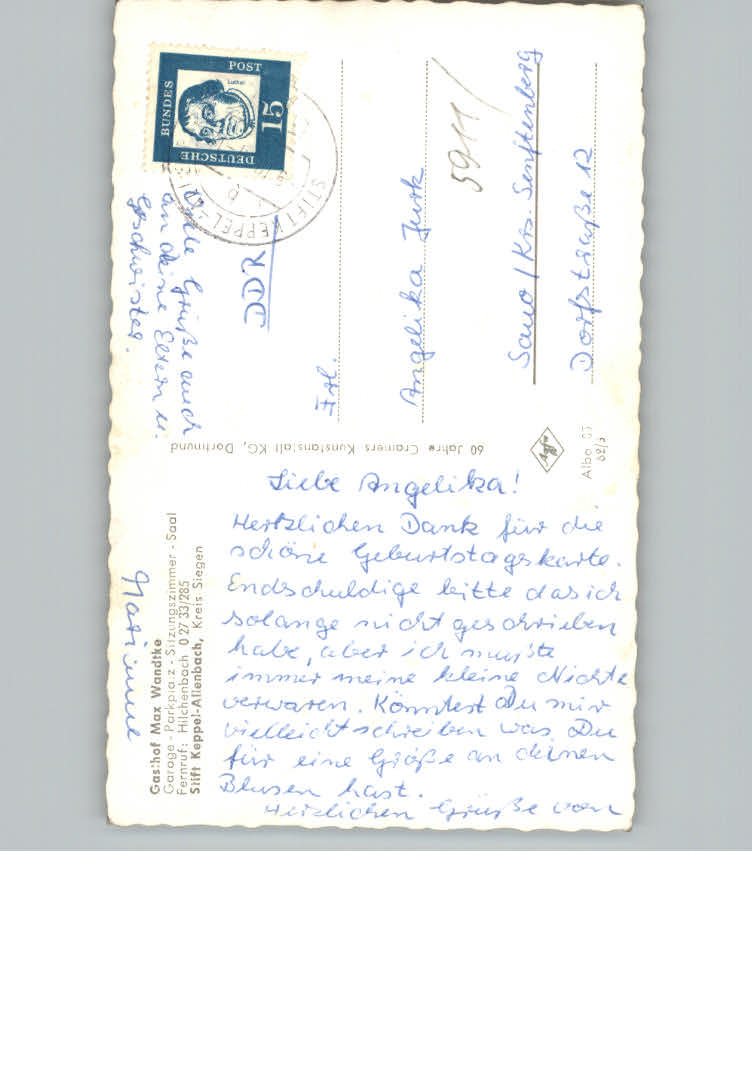 Liebe Angelika!
Hertzlichen Dank für die
schöne Geburtstageskarte.
Endschuldige bitte das ich
solange nicht geschrieben
habe, aber ich mußte
immer meine kleine Nichte
verwaren. Könntest Du mir
vielleicht schreiben was Du
für eine Größe an deinen
Blusen hast.
Herzlichen Grüße von
Marianne
Viele Grüße auch
an deine Eltern u.
Geschwister.
Gasthof Max Wandtke
Garage - Parkplatz - Sitzungszimmer - Saal
Fernruf: Hilchenbach 0 27 33/285
Stift Keppel-Allenbach, Kreis Siegen
60 Jahre Cramers Kunstanstalt KG, Dortmund
Agfa
DEUTSCHE
BUNDES
POST
Luther
15
STIFT KEPPEL-
DDR
Frl.
Angelika Jurk
5911/
Sauo / Krs. Senftenberg
Dorfstraße 12